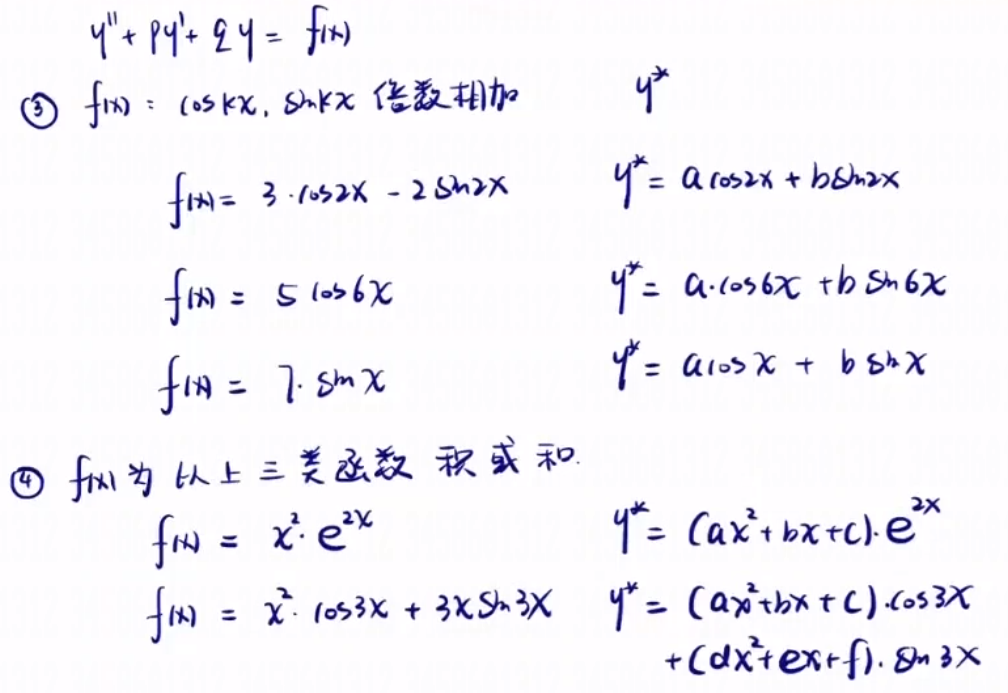 y''+ py'+ qy = f(x)
③ f(x): coskx, sinkx 倍数相加 y*
f(x)= 3·cos2x - 2sin2x y*= acos2x + bsin2x
f(x) = 5cos6x y*= a·cos6x + bsin6x
f(x) = 7·sinx y*= acosx + bsinx
④ f(x)为以上三类函数 积或和.
f(x) = x²·e²ˣ y*= (ax²+bx+c)·e²ˣ
f(x) = x²·cos3x + 3xsin3x y*= (ax²+bx+c)·cos3x
+(dx²+ex+f)·sin3x